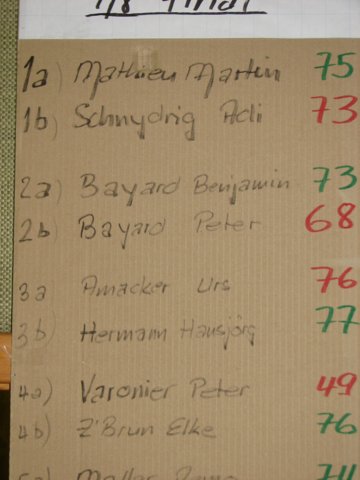 1/8 Final
1a) Mathieu Martin 75
1b) Schnydrig Adi 73
2a) Bayard Benjamin 73
2b) Bayard Peter 68
3a Amacker Urs 76
3b) Hermann Hansjörg 77
4a) Varonier Peter 49
4b) Z'Brun Elke 76
74